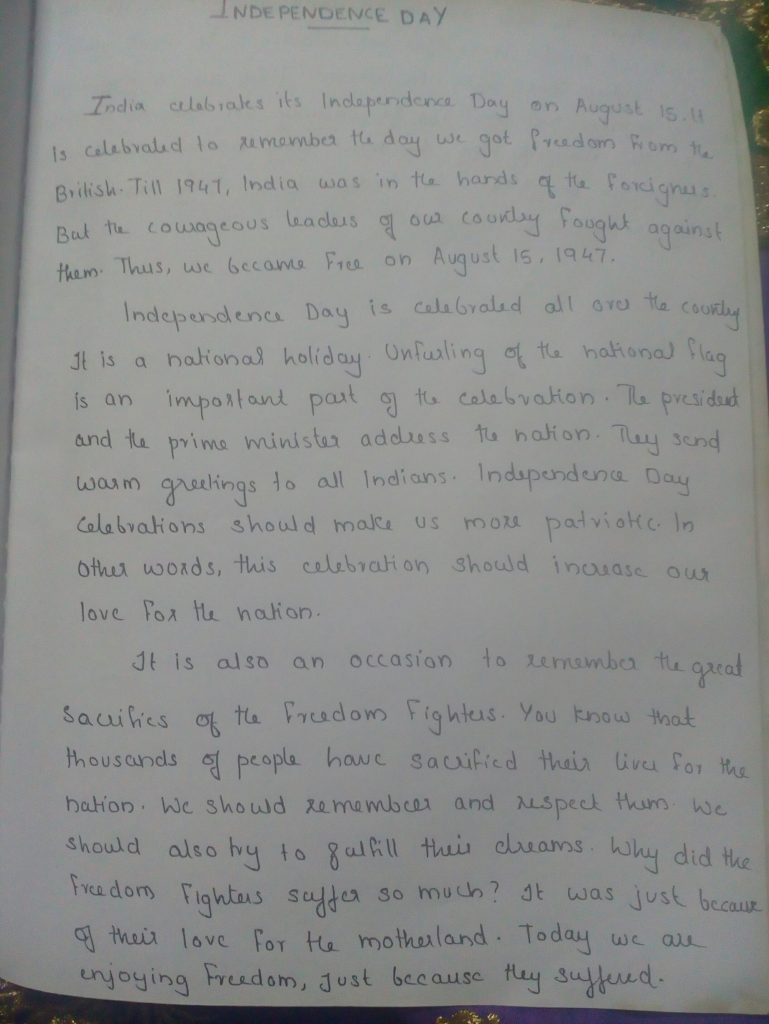 INDEPENDENCE DAY
India celebrates its Independence Day on August 15. It
Is celebrated to remember the day we got freedom from the
British. Till 1947, India was in the hands of the foreigners.
But the courageous leaders of our country fought against
them. Thus, we became free on August 15, 1947.
Independence Day is celebrated all over the country
It is a national holiday. Unfurling of the national flag
is an important part of the celebration. The president
and the prime minister address the nation. They send
warm greetings to all Indians. Independence Day
Celebrations should make us more patriotic. In
other words, this celebration should increase our
love for the nation.
It is also an occasion to remember the great
Sacrifices of the freedom fighters. You know that
thousands of people have sacrificed their lives for the
nation. We should remember and respect them. We
should also try to fulfill their dreams. Why did the
freedom fighters suffer so much? It was just because
of their love for the motherland. Today we are
enjoying freedom, just because they suffered.